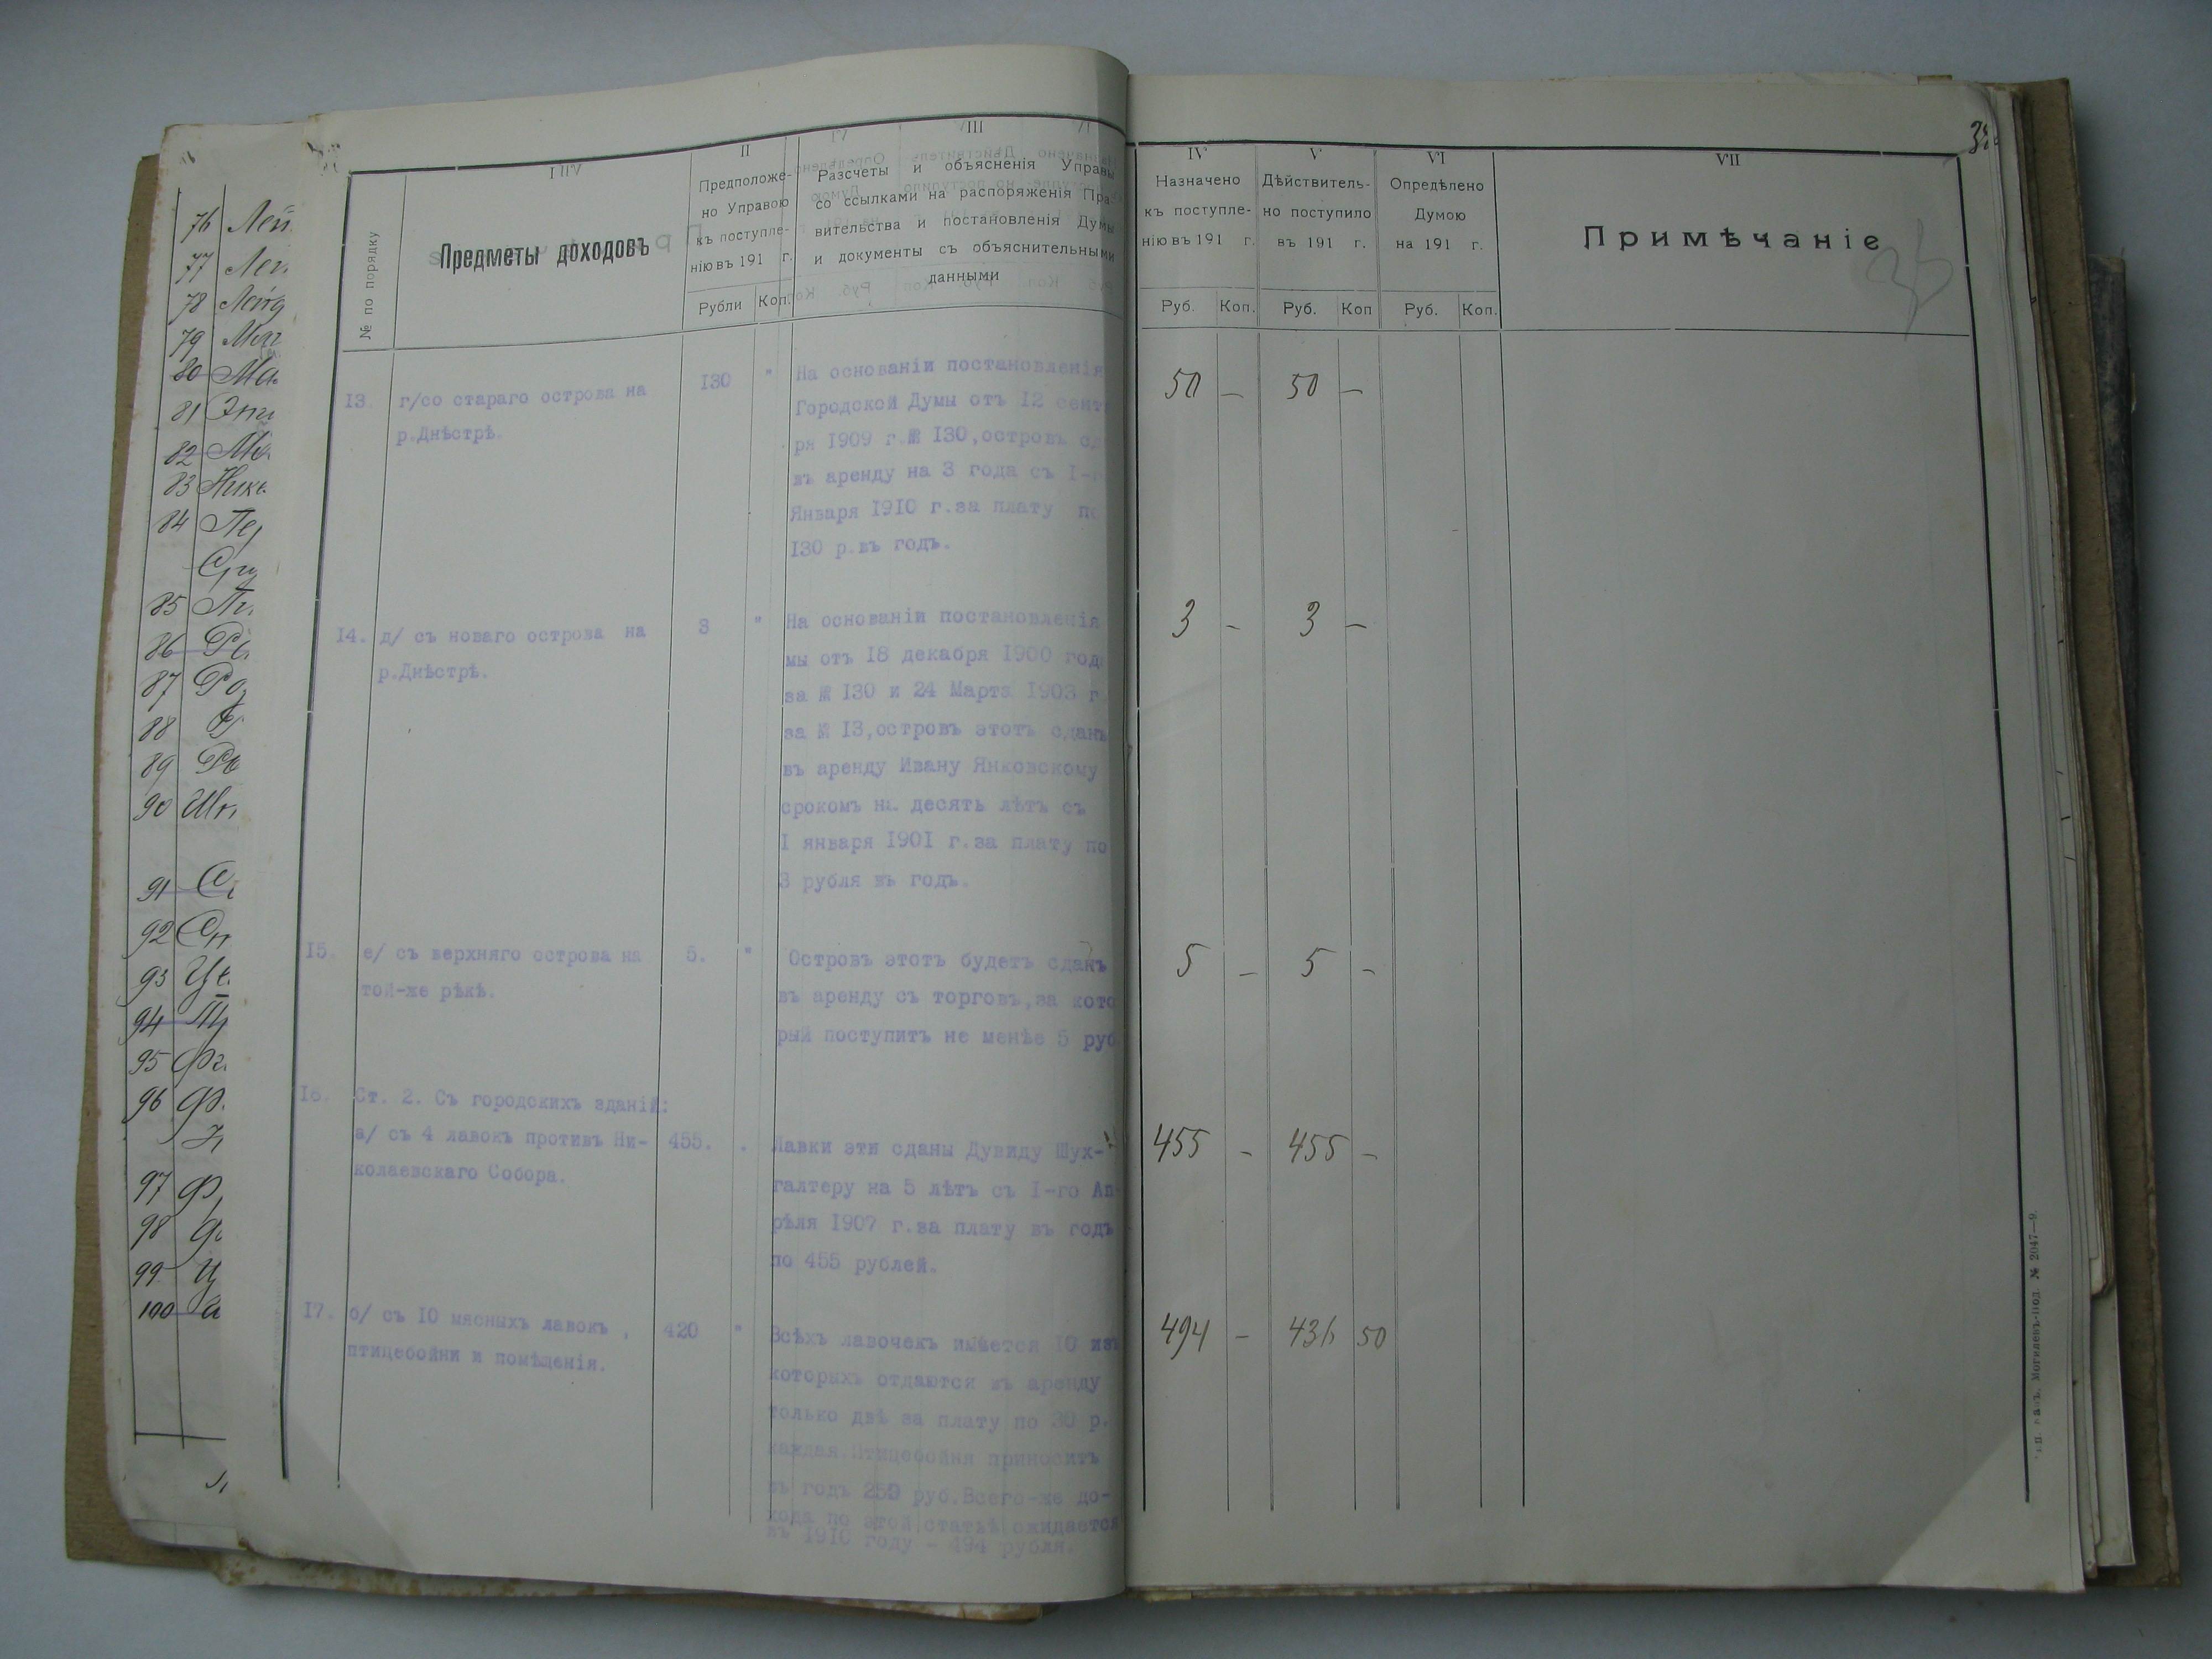 76 Лей
77
78 Лейд
79
80 Ма
81
82
83 Нике
84 Пер
85
86
87 Роз
88
89
90
91
92
93
94
95
96
97
98
99
100
№ по порядку
Предметы доходовъ
II
Предположе-
но Управою
къ поступле-
нію въ 191 г.
Рубли Коп.
III
Разсчеты и объясненія Управы
со ссылками на распоряженія Пра-
вительства и постановленія Думы
и документы съ объяснительными
данными
IV
Назначено
къ поступле-
нію въ 191 г.
Руб. Коп.
V
Дѣйствитель-
но поступило
въ 191 г.
Руб. Коп
VI
Опредѣлено
Думою
на 191 г.
Руб. Коп.
VII
Примѣчаніе
13. г/со стараго острова на
р.Днѣстрѣ.
130 "
На основаніи постановленія
Городской Думы отъ 12 сент
ря 1909 г.№ 130,островъ сд
въ аренду на 3 года съ I-г
Января 1910 г.за плату по
130 р.въ годъ.
50 — 50 —
14. д/ съ новаго острова на
р.Днѣстрѣ.
3 "
На основаніи постановленія
мы отъ 18 декабря 1900 года
за № 130 и 24 Марта 1903 г
за № 13,островъ этотъ сданъ
въ аренду Ивану Янковскому
срокомъ на десять лѣтъ съ
I января 1901 г.за плату по
3 рубля въ годъ.
3 - 3 —
15. е/ съ верхняго острова на
той-же рѣкѣ.
5. "
Островъ этотъ будетъ сданъ
въ аренду съ торговъ,за кото
рый поступитъ не менѣе 5 руб
5 - 5 -
16. Ст. 2. Съ городскихъ зданій:
а/ съ 4 лавокъ противъ Ни-
колаевскаго Собора.
455. .
Лавки эти сданы Дувиду Шух-
галтеру на 5 лѣтъ съ I-го Ап-
рѣля 1907 г.за плату въ годъ
по 455 рублей.
455 - 455 -
17. б/ съ 10 мясныхъ лавокъ ,
птицебойни и помѣщенія.
420 "
Всѣхъ лавочекъ имѣется 10 изъ
которыхъ отдаются въ аренду
только двѣ за плату по 30 р.
каждая.Птицебойня приноситъ
въ годъ 259 руб.Всего-же до-
хода по этой статьѣ ожидается
въ 1910 году - 494 рубля.
494 - 436 50
Могилевъ-под. № 2047—9.